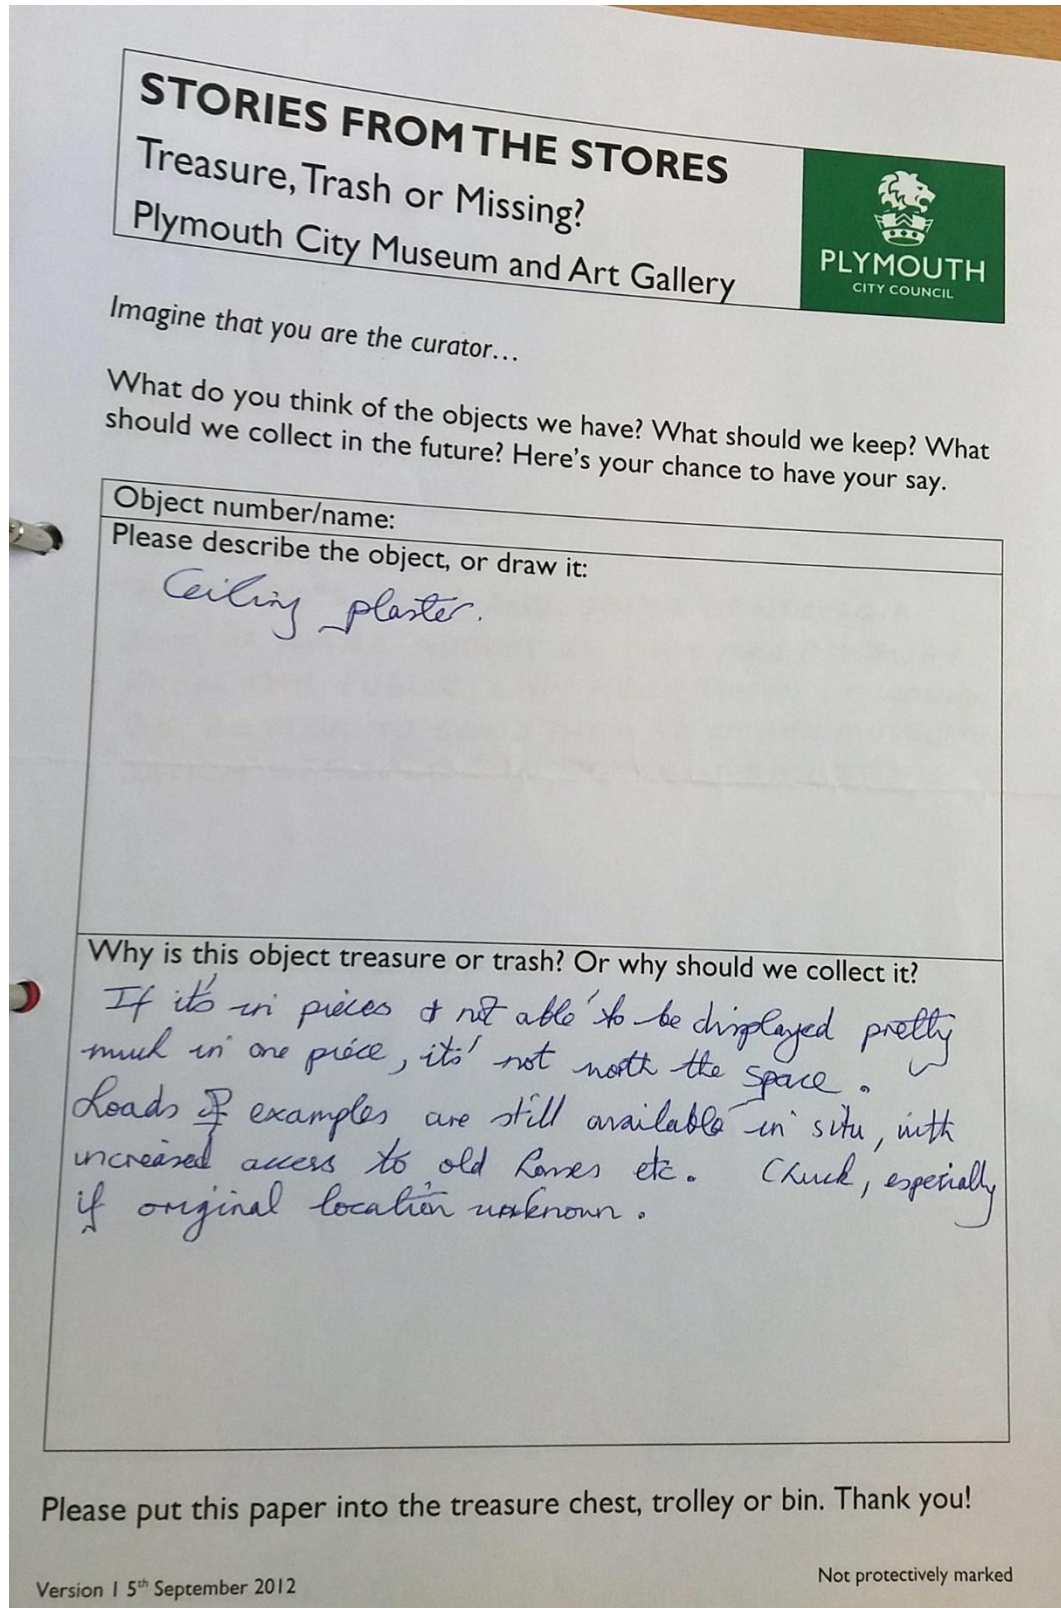 STORIES FROM THE STORES
Treasure, Trash or Missing?
Plymouth City Museum and Art Gallery
PLYMOUTH
CITY COUNCIL
Imagine that you are the curator...
What do you think of the objects we have? What should we keep? What
should we collect in the future? Here's your chance to have your say.
Object number/name:
Please describe the object, or draw it:
Ceiling plaster.
Why is this object treasure or trash? Or why should we collect it?
If it's in pieces & not able to be displayed pretty
much in one piece, it's not worth the space.
Loads of examples are still available in situ, with
increased access to old homes etc. Chuck, especially
if original location unknown.
Please put this paper into the treasure chest, trolley or bin. Thank you!
Version 1 5th September 2012
Not protectively marked